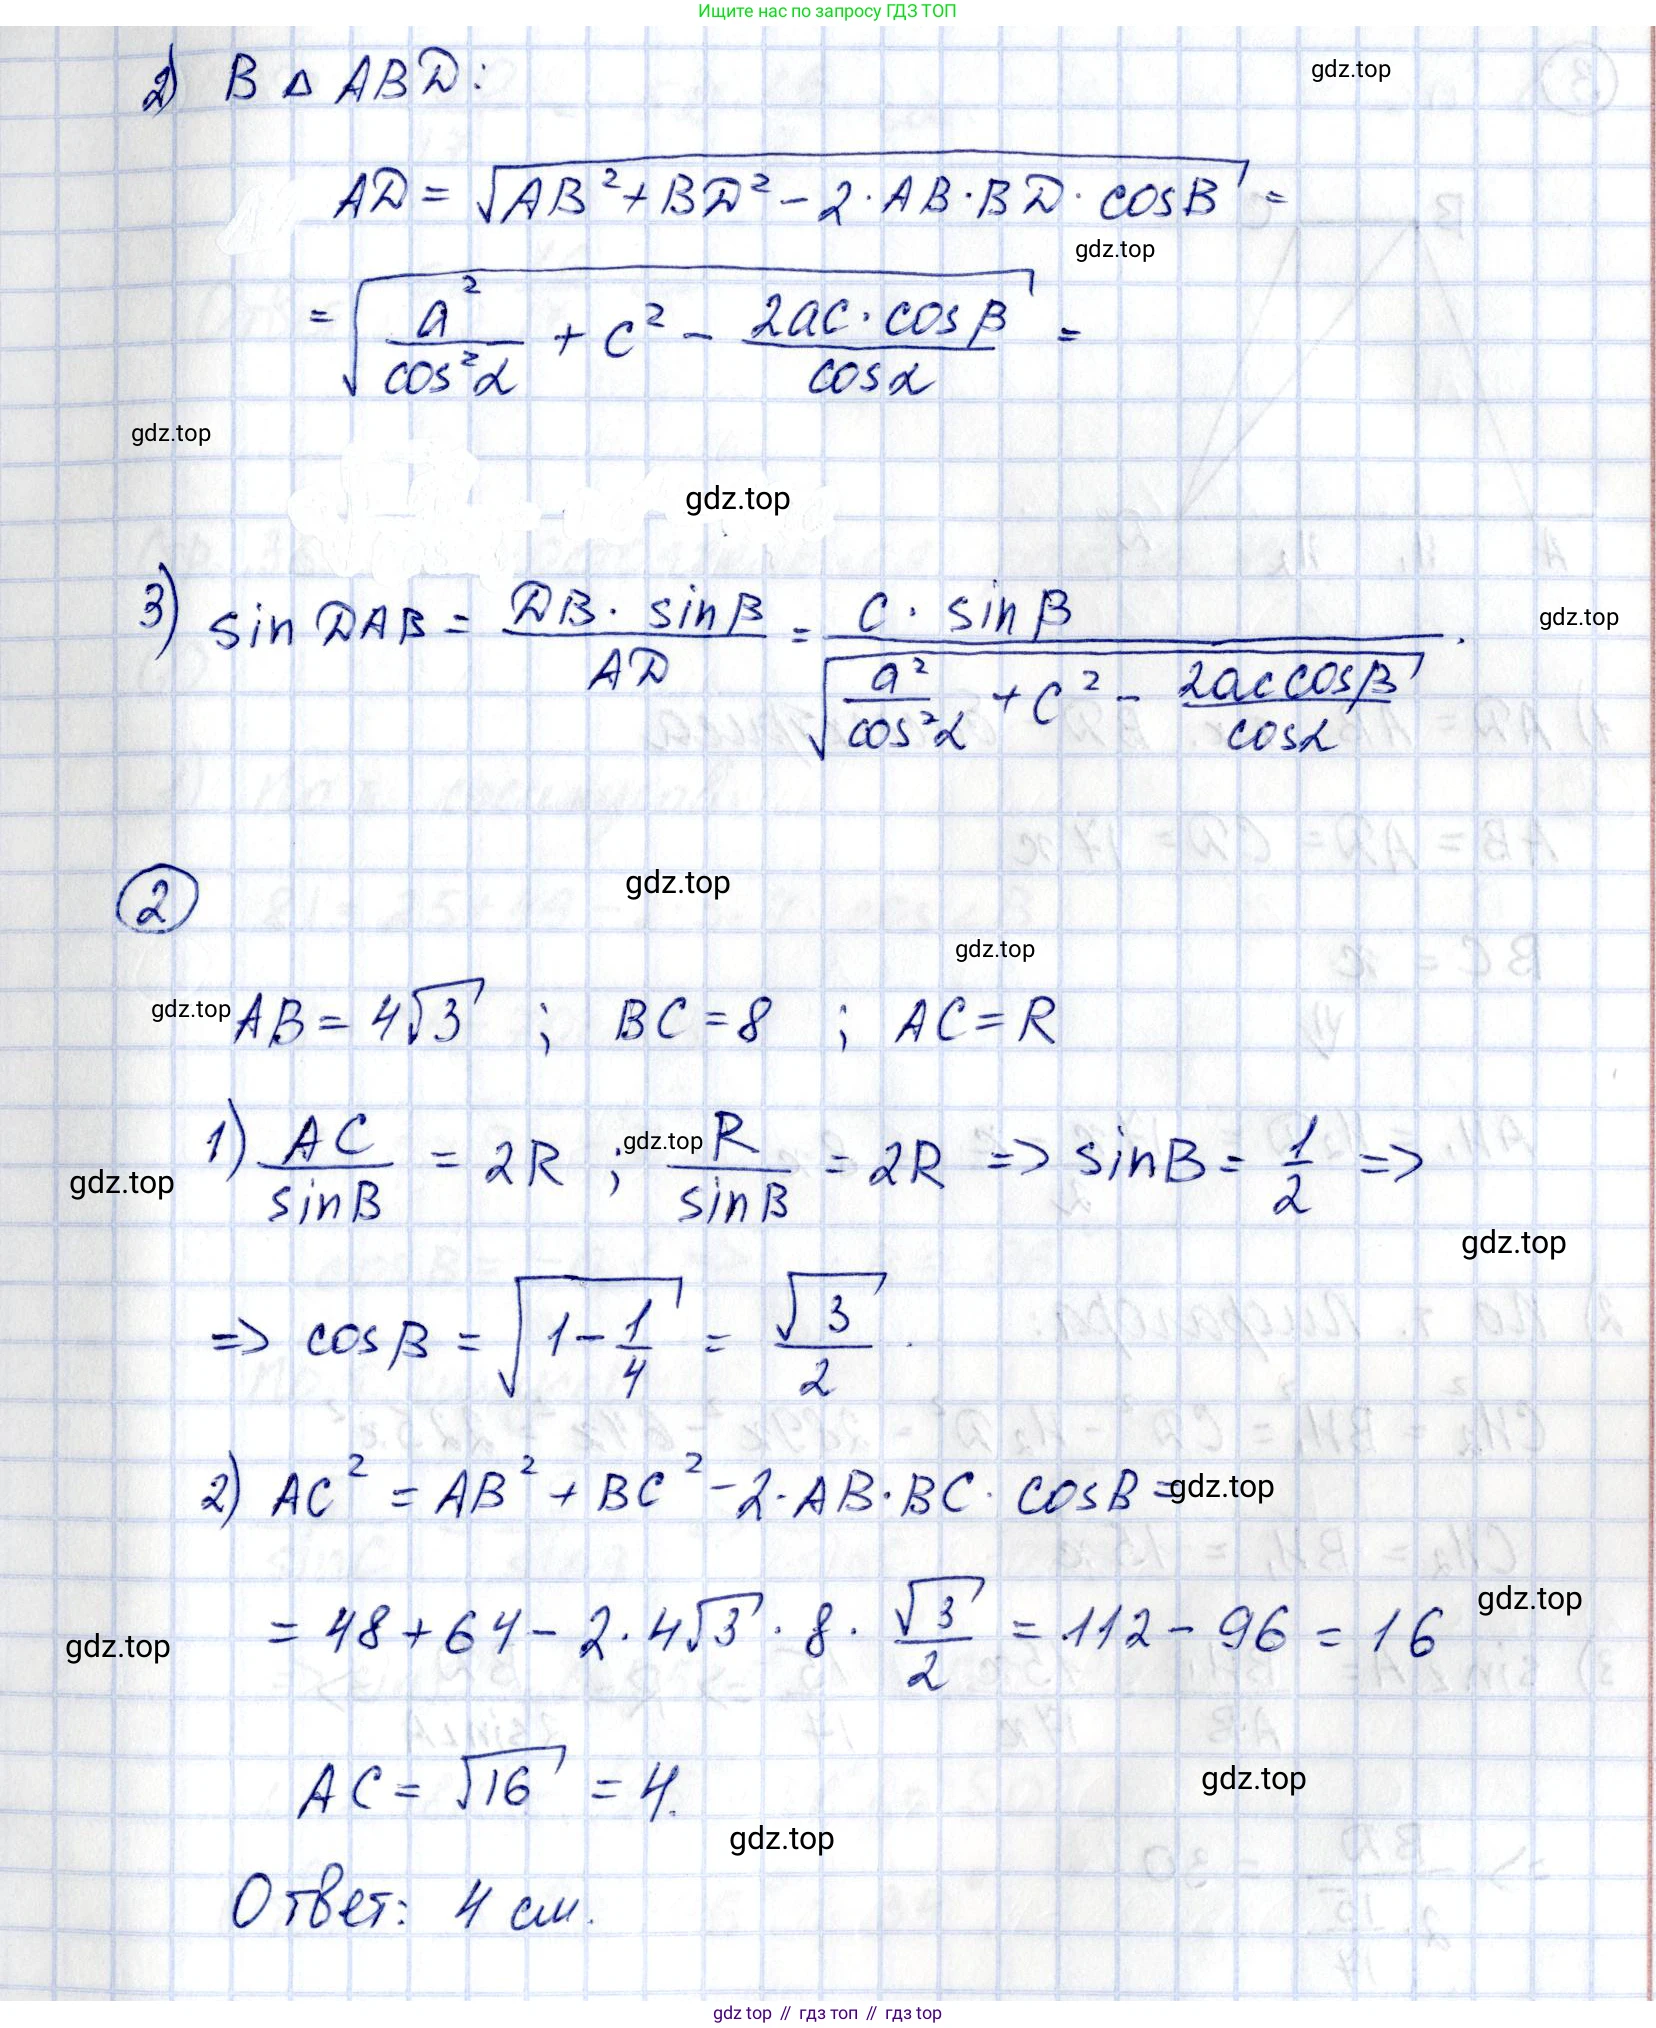 Ищите нас по запросу ГДЗ ТОП
2) В △ ABD:
gdz.top
AD = √(AB² + BD² − 2·AB·BD·cosB) =
gdz.top
= √(a²/cos²α + c² − 2ac·cosβ/cosα) =
gdz.top
gdz.top
3) sin DAB = DB·sinβ/AD = c·sinβ/√(a²/cos²α + c² − 2ac cosβ/cosα).
gdz.top
2
gdz.top
gdz.top
gdz.top
AB = 4√3 ; BC = 8 ; AC = R
1) AC/sinB = 2R ; R/sinB = 2R => sinB = 1/2 =>
gdz.top
gdz.top
gdz.top
=> cosβ = √(1 − 1/4) = √3/2.
2) AC² = AB² + BC² − 2·AB·BC·cosB =
gdz.top
= 48 + 64 − 2·4√3·8·√3/2 = 112 − 96 = 16
gdz.top
gdz.top
AC = √16 = 4.
gdz.top
gdz.top
Ответ: 4 см.
gdz top // гдз топ // гдз top